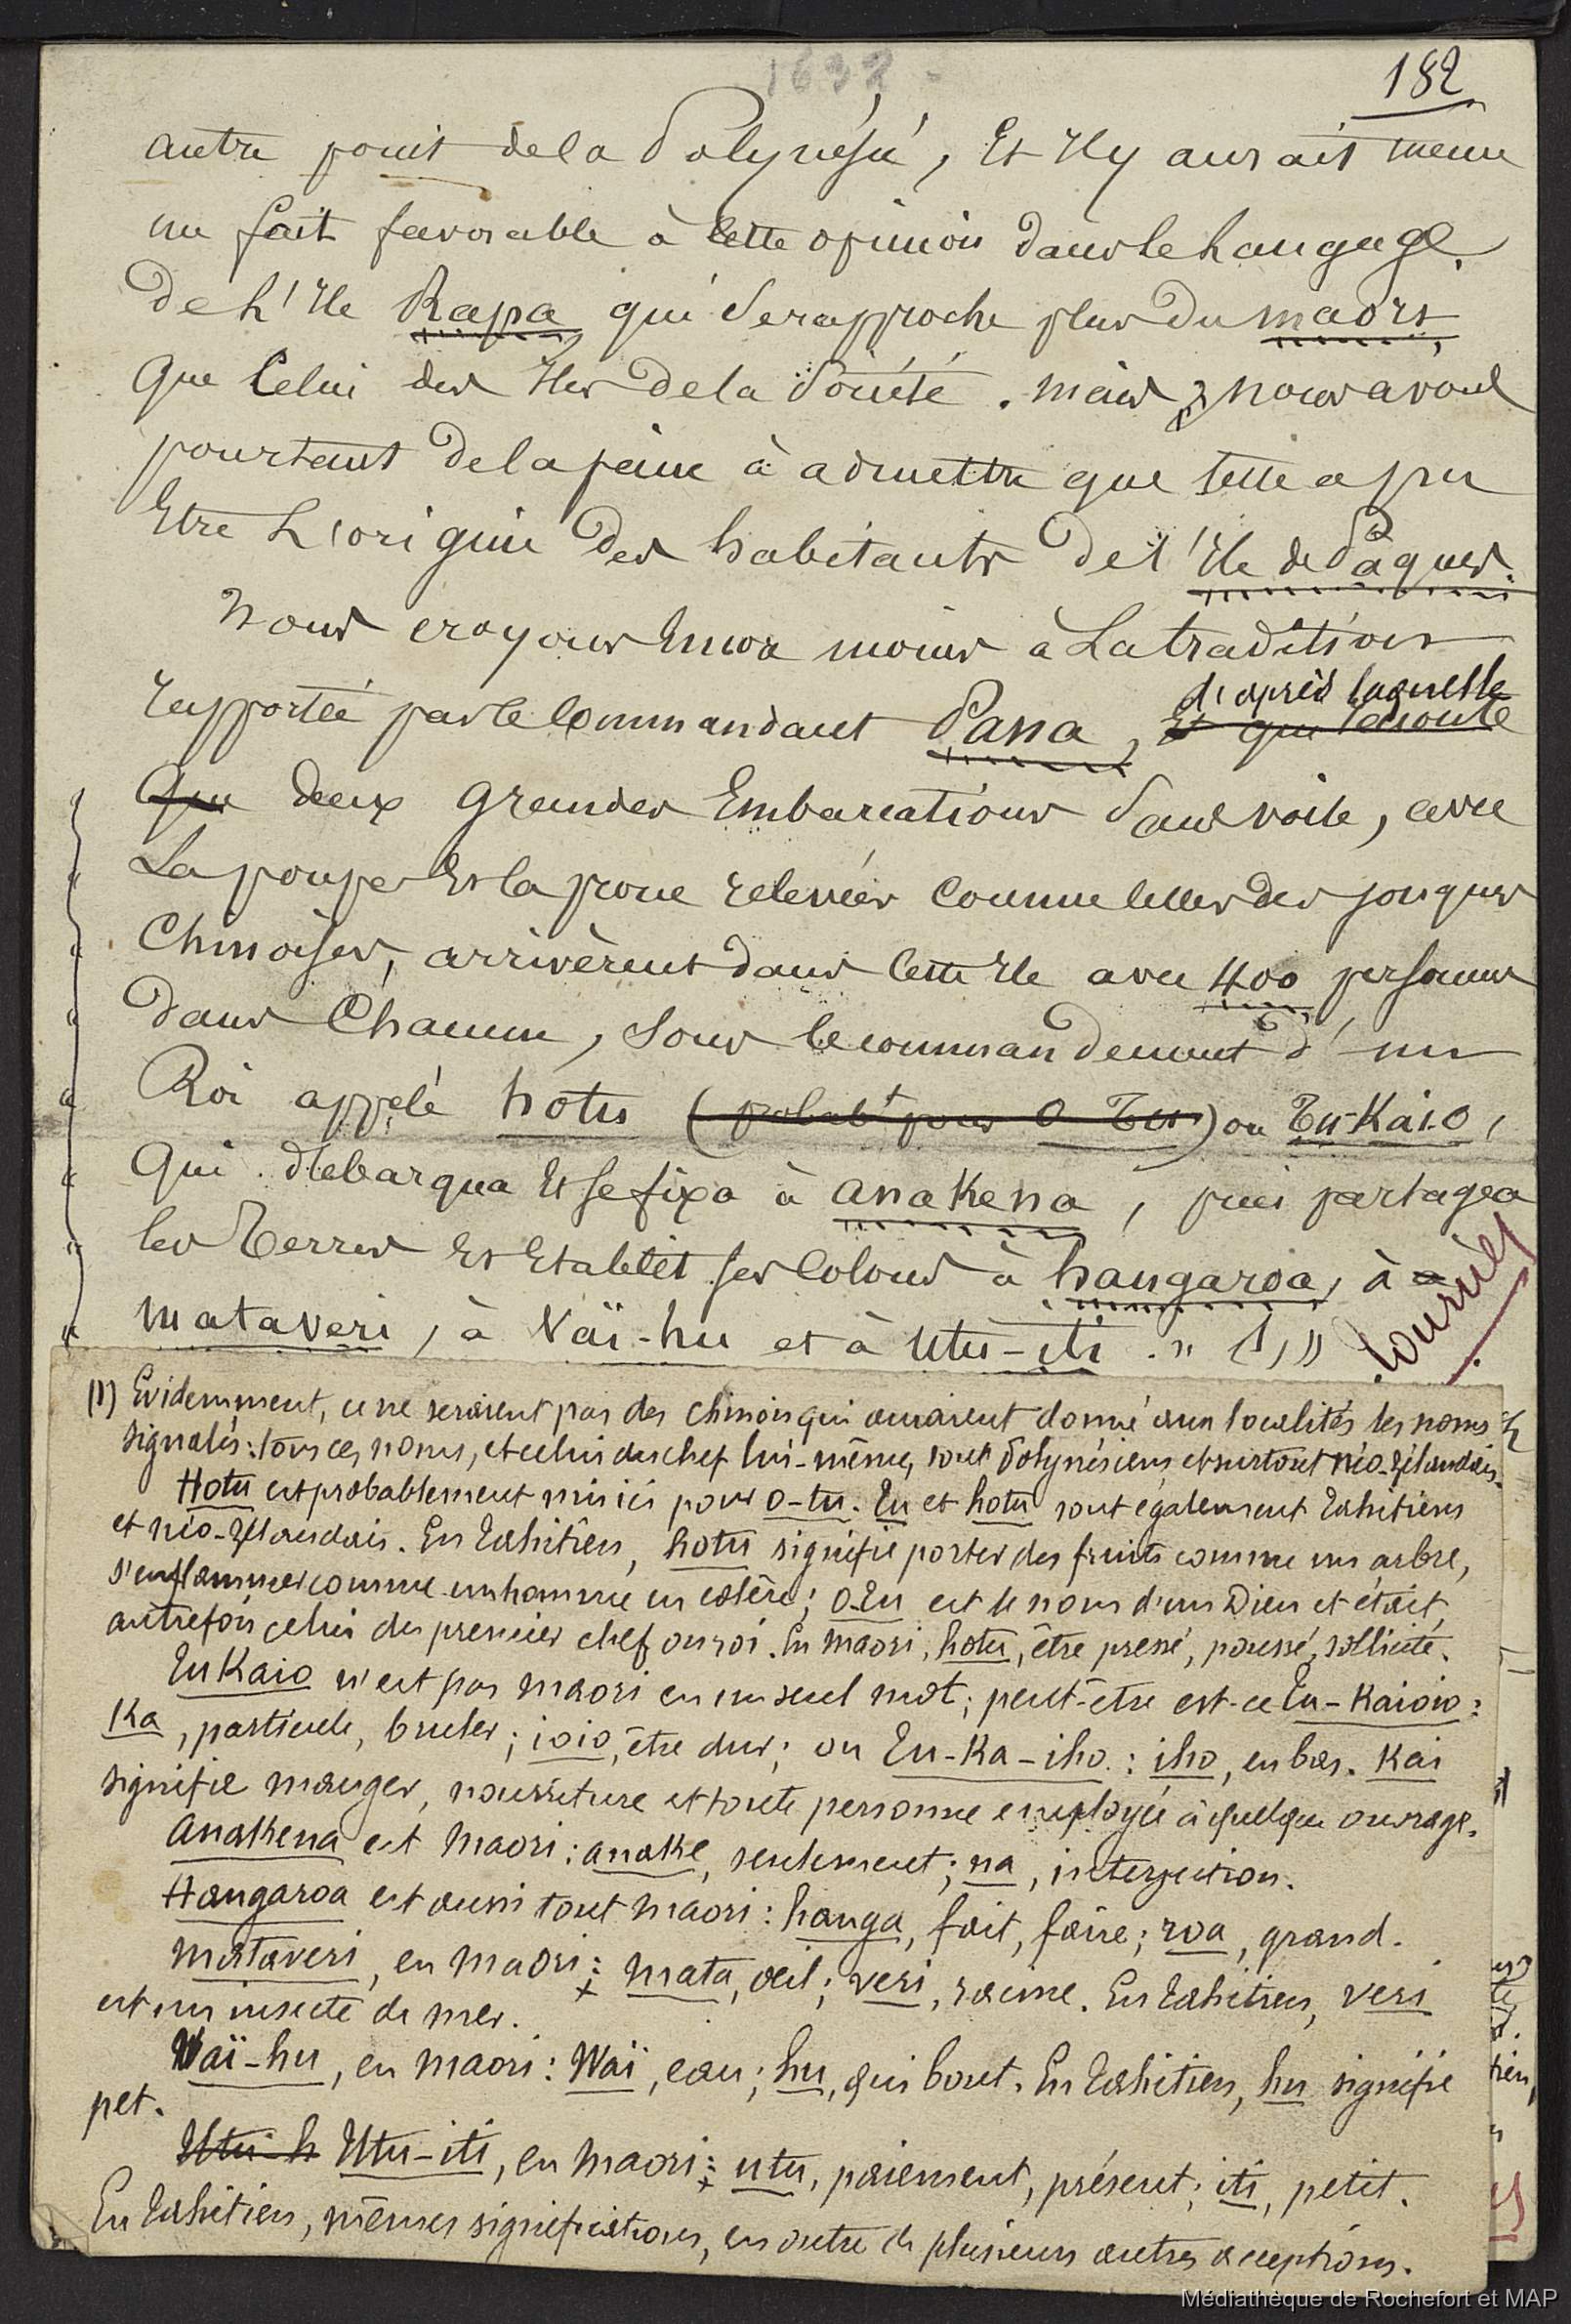 1632
182
autre point de la Polynésie, Et Il y aurait même
un fait favorable à cette opinion dans le langage
de L'Ile Rapa qui Se rapproche plus du maori
que Celui des Iles de la Société. mais nous avons
pourtant de la peine à admettre que telle a pu
Etre L'origine des habitants de l'Ile de Pâques.
Nous croyons Encor moins à La tradition
d'après laquelle
rapportée par le Commandant Pana, Et qui raconte
que deux grandes Embarcations Sans voile, avec
La poupe Et la proue relevées Comme celles des jonques
Chinoises, arrivèrent dans Cette Ile avec 400 personnes
dans Chacune, Sous le commandement d'un
Roi appelé hotu (probabt pour O Tu) ou Tu-Kaio,
qui débarqua Et Se fixa à anakena, puis partagea
les Terres Et Etablit Ses Colons à hangaroa, à a
mataveri, à Vaï-hu et à Utu-iti. " (1)
(1) Evidemment, ce ne seraient pas des chinois qui auraient donné aux localités les noms
signalés: tous ces noms, et celui du chef lui-même, sont Polynésiens et surtout néo-zélandais.
Hotu est probablement mis ici pour O-tu. Tu et hotu sont également Tahitiens
et néo-zélandais. En Tahitien, hotu signifie porter des fruits comme un arbre,
s'enflammer comme un homme en colère; O-Tu est le nom d'un Dieu et était
autrefois celui du premier chef ou roi. En maori, hotu, être pressé, poussé, sollicité.
Tu Kaio n'est pas maori en un seul mot; peut-être est-ce Tu-Kaioio:
Ka, particule, bruler; ioio, être dur; ou Tu-Ka-iho: iho, en bas. Kai
signifie manger, nourriture et toute personne employée à quelque ouvrage.
Anakena est maori: anake, seulement; na, interjection.
Hangaroa est aussi tout maori: hanga, fait, faire; roa, grand.
Mataveri, en maori: mata, œil; veri, racine. En Tahitien, veri
est un insecte de mer.
Waï-hu, en maori: Waï, eau; hu, qui bout. En Tahitien, hu signifie
pet.
Utu-h Utu-iti, en maori: utu, paiement, présent; iti, petit.
En Tahitien, mêmes significations, en outre de plusieurs autres acceptions.
Médiathèque de Rochefort et MAP